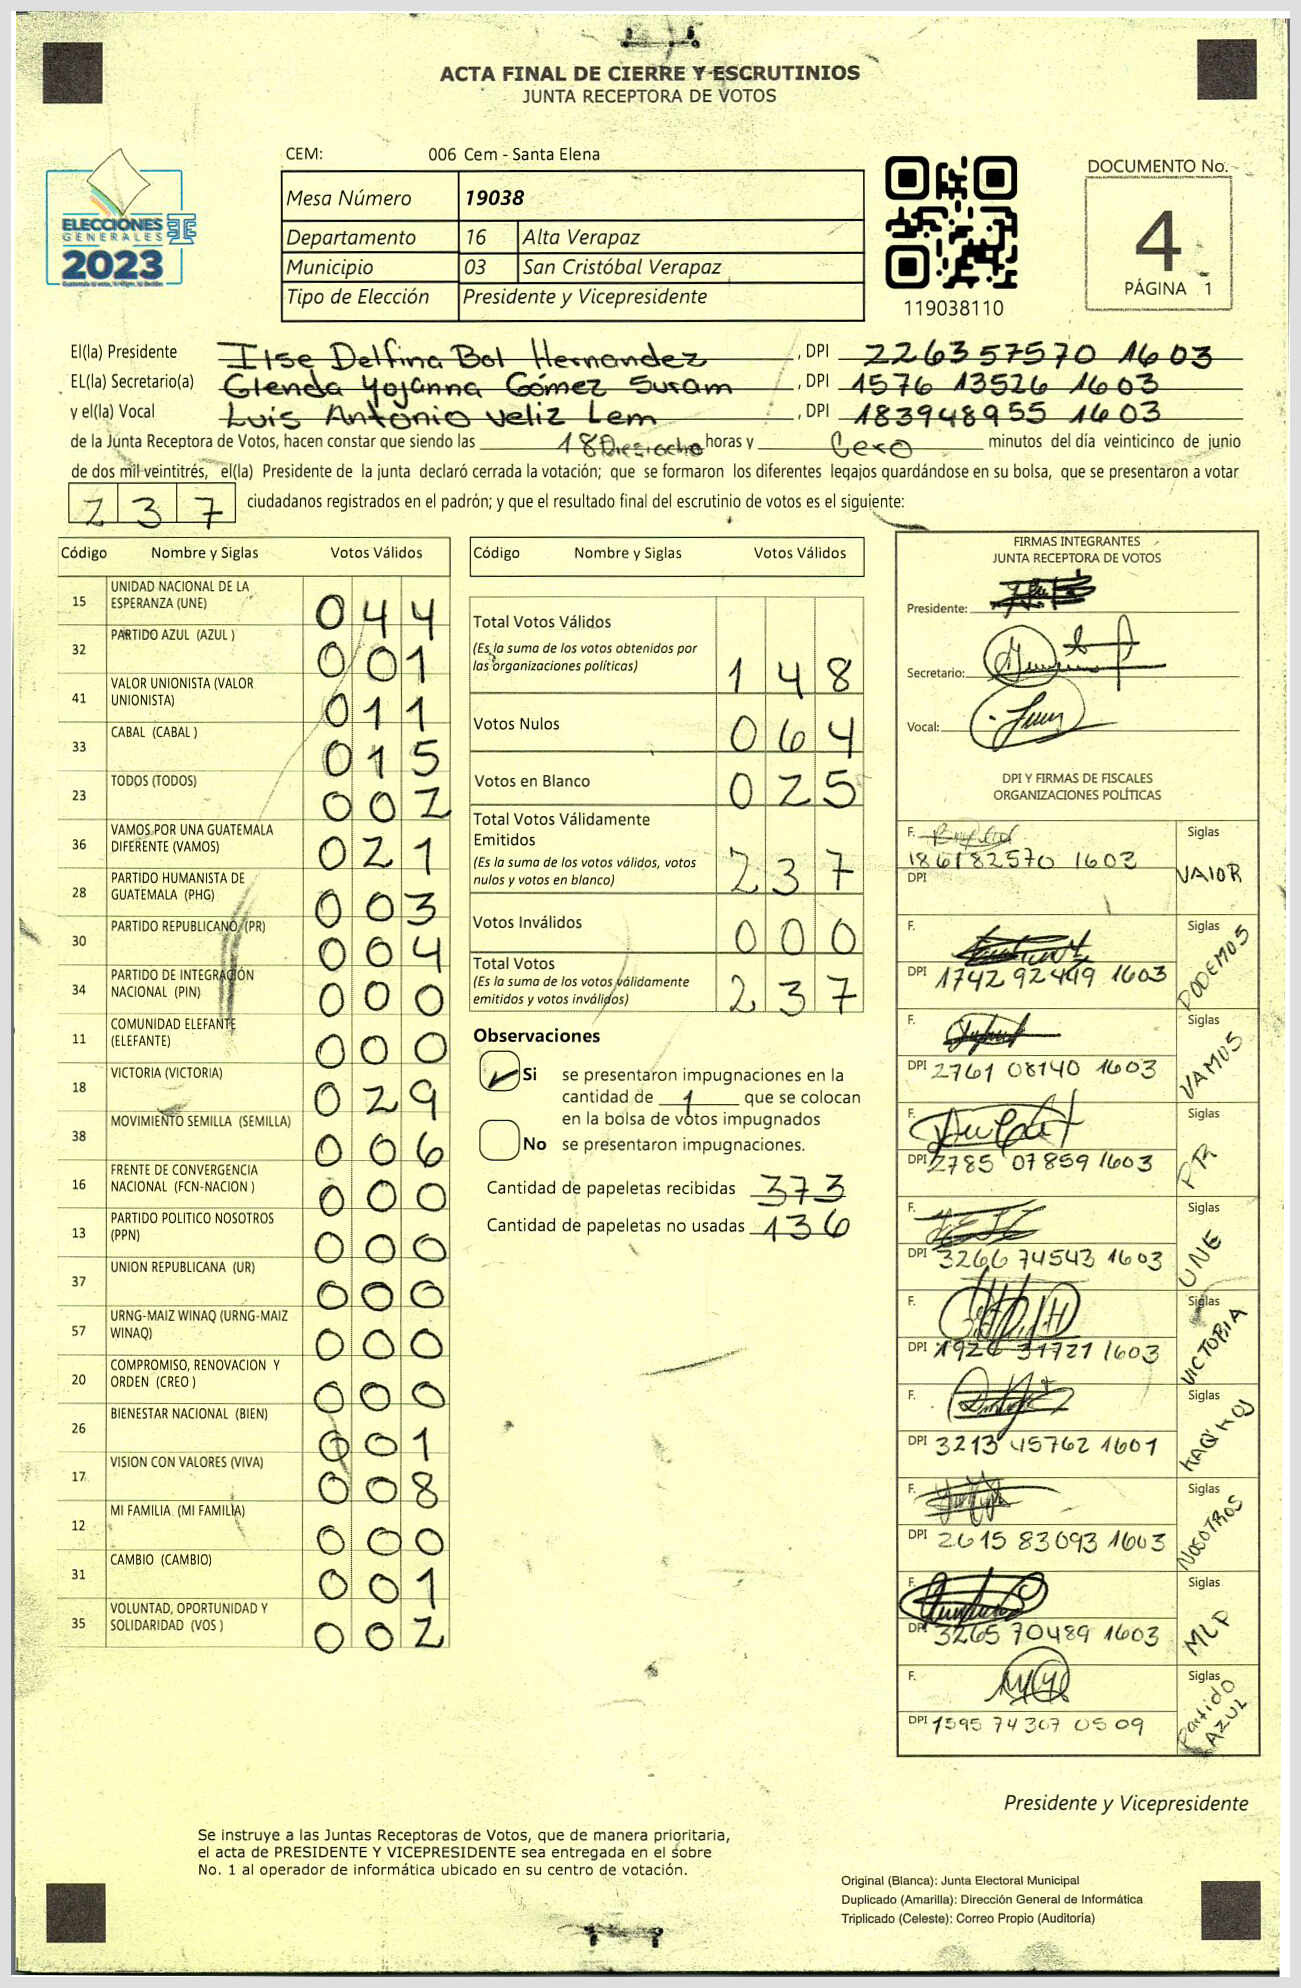 ACTA FINAL DE CIERRE Y ESCRUTINIOS
JUNTA RECEPTORA DE VOTOS
CEM: 006 Cem - Santa Elena
ELECCIONES
GENERALES
2023
Mesa Número 19038
Departamento 16 Alta Verapaz
Municipio 03 San Cristóbal Verapaz
Tipo de Elección Presidente y Vicepresidente
119038110
DOCUMENTO No.
4
PÁGINA 1
El(la) Presidente Ilse Delfina Bol Hernandez, DPI 226357570 1603
EL(la) Secretario(a) Glenda Yojanna Gómez Suram, DPI 1576 13526 1603
y el(la) Vocal Luis Antonio Veliz Lem, DPI 183948955 1603
de la Junta Receptora de Votos, hacen constar que siendo las 18 Dieciocho horas y Cero minutos del día veinticinco de junio
de dos mil veintitrés, el(la) Presidente de la junta declaró cerrada la votación; que se formaron los diferentes legajos guardándose en su bolsa, que se presentaron a votar
237 ciudadanos registrados en el padrón; y que el resultado final del escrutinio de votos es el siguiente:
Código Nombre y Siglas Votos Válidos
15 UNIDAD NACIONAL DE LA ESPERANZA (UNE) 044
32 PARTIDO AZUL (AZUL ) 001
41 VALOR UNIONISTA (VALOR UNIONISTA) 011
33 CABAL (CABAL ) 015
23 TODOS (TODOS) 002
36 VAMOS POR UNA GUATEMALA DIFERENTE (VAMOS) 021
28 PARTIDO HUMANISTA DE GUATEMALA (PHG) 003
30 PARTIDO REPUBLICANO (PR) 004
34 PARTIDO DE INTEGRACIÓN NACIONAL (PIN) 000
11 COMUNIDAD ELEFANTE (ELEFANTE) 000
18 VICTORIA (VICTORIA) 029
38 MOVIMIENTO SEMILLA (SEMILLA) 006
16 FRENTE DE CONVERGENCIA NACIONAL (FCN-NACION ) 000
13 PARTIDO POLITICO NOSOTROS (PPN) 000
37 UNION REPUBLICANA (UR) 000
57 URNG-MAIZ WINAQ (URNG-MAIZ WINAQ) 000
20 COMPROMISO, RENOVACION Y ORDEN (CREO ) 000
26 BIENESTAR NACIONAL (BIEN) 001
17 VISION CON VALORES (VIVA) 008
12 MI FAMILIA (MI FAMILIA) 000
31 CAMBIO (CAMBIO) 001
35 VOLUNTAD, OPORTUNIDAD Y SOLIDARIDAD (VOS ) 002
Código Nombre y Siglas Votos Válidos
Total Votos Válidos 148
(Es la suma de los votos obtenidos por
las organizaciones políticas)
Votos Nulos 064
Votos en Blanco 025
Total Votos Válidamente
Emitidos 237
(Es la suma de los votos válidos, votos
nulos y votos en blanco)
Votos Inválidos 000
Total Votos 237
(Es la suma de los votos válidamente
emitidos y votos inválidos)
Observaciones
Si se presentaron impugnaciones en la
cantidad de 1 que se colocan
en la bolsa de votos impugnados
No se presentaron impugnaciones.
Cantidad de papeletas recibidas 373
Cantidad de papeletas no usadas 136
FIRMAS INTEGRANTES
JUNTA RECEPTORA DE VOTOS
Presidente:
Secretario:
Vocal:
DPI Y FIRMAS DE FISCALES
ORGANIZACIONES POLÍTICAS
F. Siglas
DPI 186182570 1603 VALOR
F. Siglas
DPI 1742 92449 1603 PODEMOS
F. Siglas
DPI 2761 08140 1603 VAMOS
F. Siglas
DPI 2785 07859 1603 PR
F. Siglas
DPI 3266 74543 1603 UNE
F. Siglas
DPI 1926 31721 1603 VICTORIA
F. Siglas
DPI 3213 45762 1601
F. Siglas
DPI 2615 83093 1603 NOSOTROS
F. Siglas
DPI 3265 70489 1603 MLP
F. Siglas
DPI 1595 74307 0509 Partido AZUL
Presidente y Vicepresidente
Se instruye a las Juntas Receptoras de Votos, que de manera prioritaria,
el acta de PRESIDENTE Y VICEPRESIDENTE sea entregada en el sobre
No. 1 al operador de informática ubicado en su centro de votación.
Original (Blanca): Junta Electoral Municipal
Duplicado (Amarilla): Dirección General de Informática
Triplicado (Celeste): Correo Propio (Auditoría)